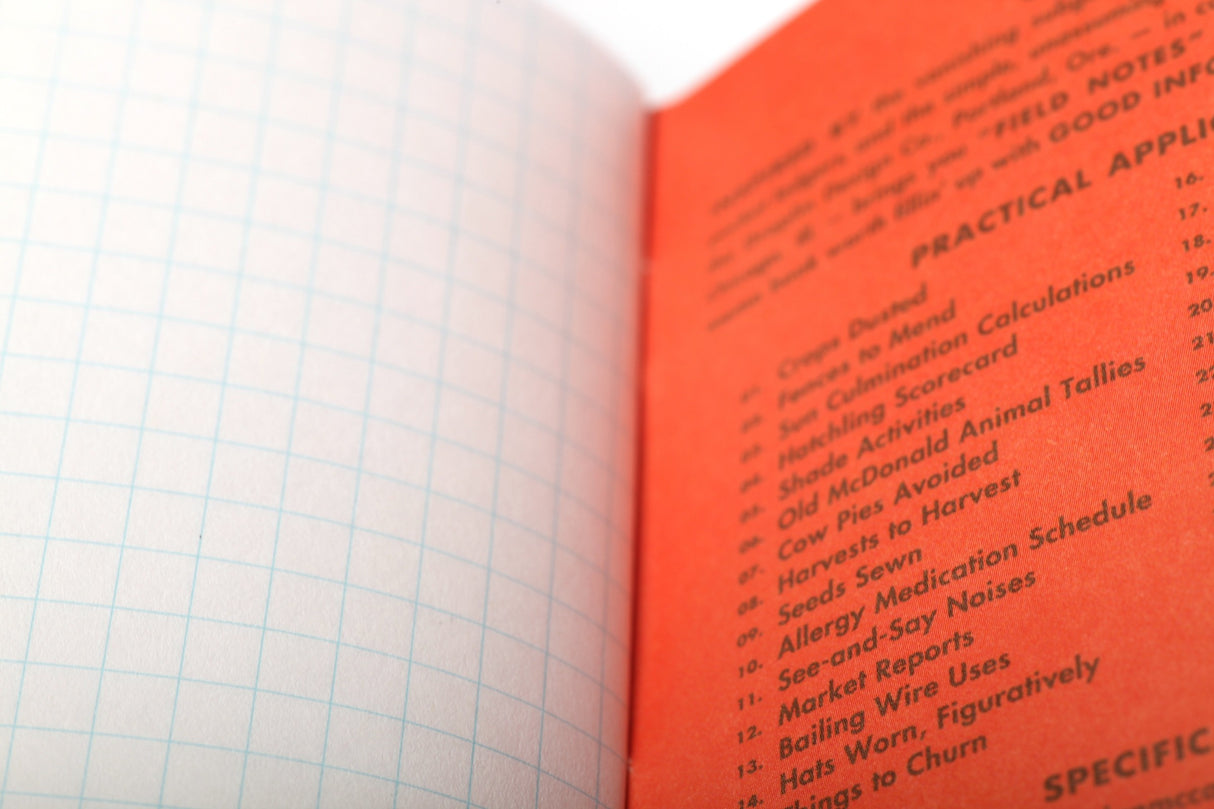 in co
Design Co., Portland, Ore. —
brings you "FIELD NOTES"
worth fillin' up with GOOD INFO
PRACTICAL APPLI
01. Crops Dusted
02. Fences to Mend
03. Sun Culmination Calculations
04. Hatchling Scorecard
05. Shade Activities
06. Old McDonald Animal Tallies
07. Cow Pies Avoided
08. Harvests to Harvest
09. Seeds Sewn
10. Allergy Medication Schedule
11. See-and-Say Noises
12. Market Reports
13. Bailing Wire Uses
14. Hats Worn, Figuratively
Things to Churn
16.
17.
18.
19.
20
21
22
2
2
SPECIFIC